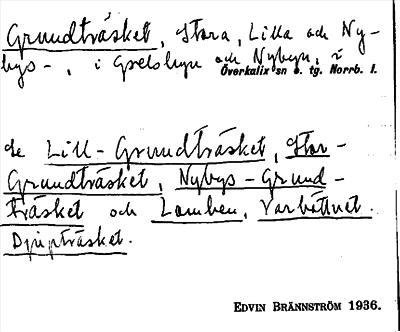 Grundträsket, Stora, Lilla och Ny-
bys-, i Grelsbyn och Nybyn, i
Överkalix sn o. tg. Norrb. l.
Se Lill-Grundträsket, Stor-
Grundträsket, Nybys-Grund-
träsket och Lomben, Varbåttnet.
Djupträsket.
EDVIN BRÄNNSTRÖM 1936.